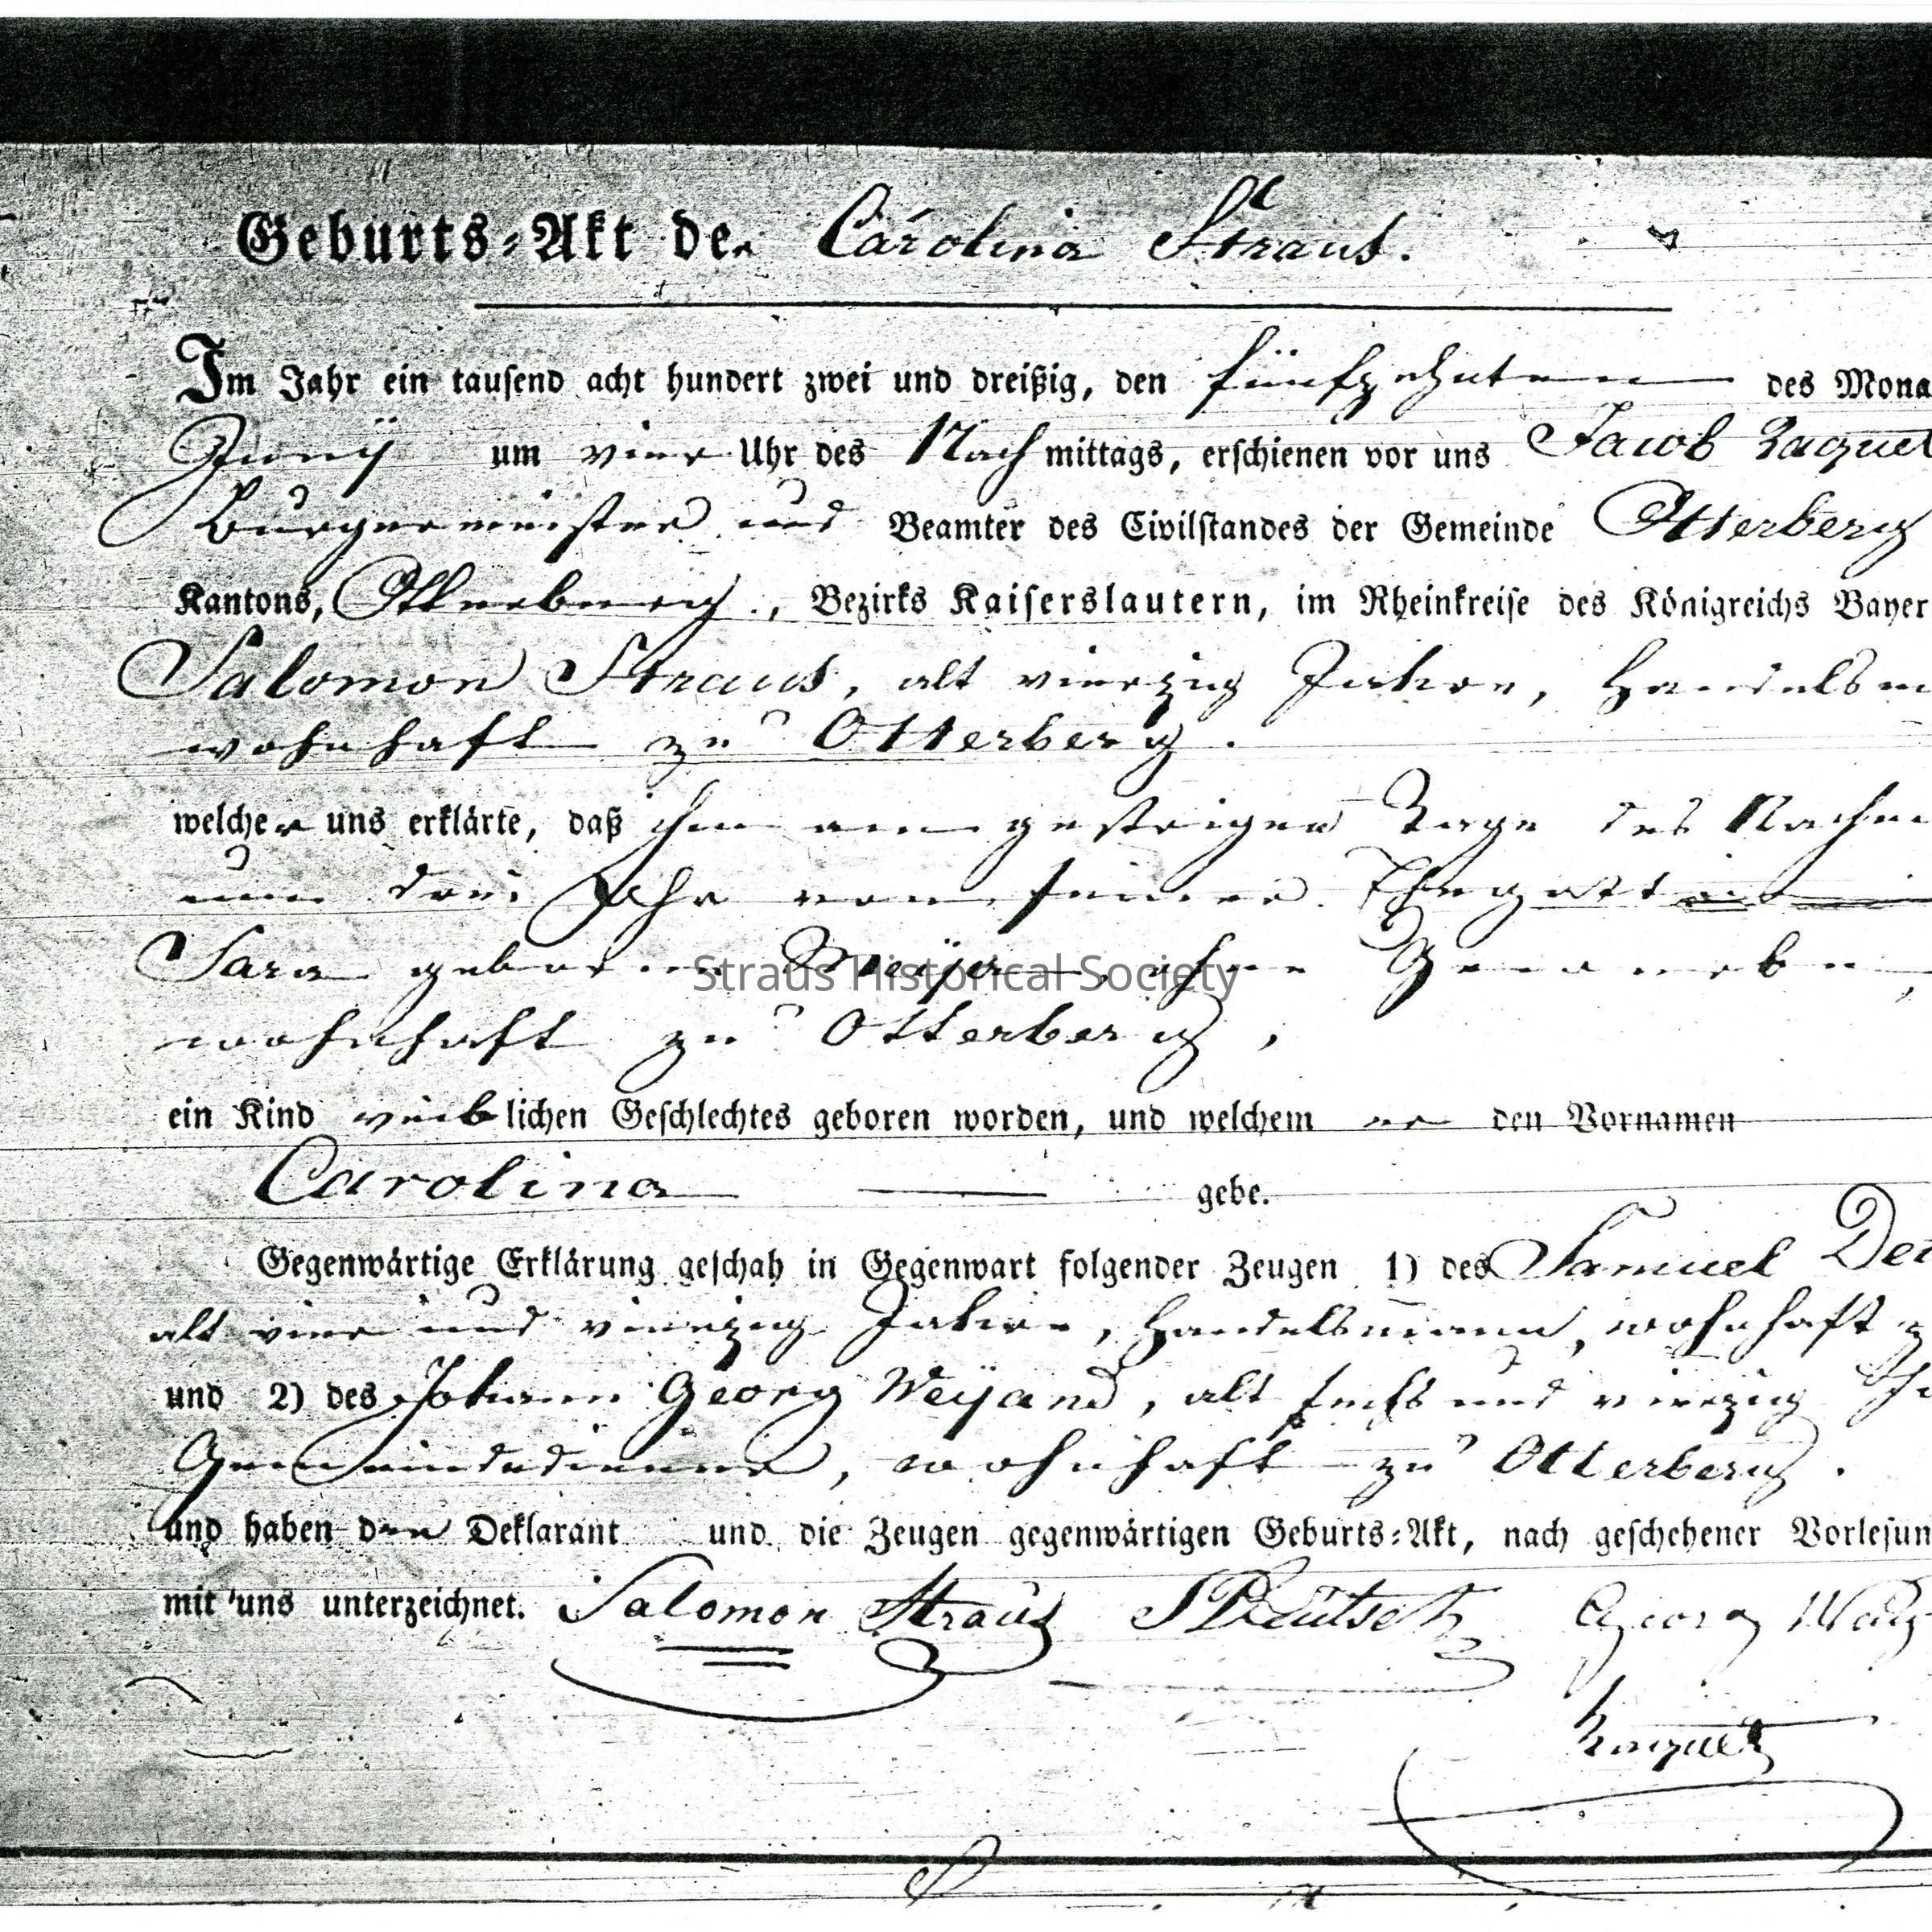 Geburts-Akt der Carolina Straus.
Im Jahr ein tausend acht hundert zwei und dreißig, den fünfzehnten des Mona
Juny um vier Uhr des Nachmittags, erschienen vor uns Jacob Raquet
Bürgermeister und Beamter des Civilstandes der Gemeinde Otterberg
Kantons, Otterberg, Bezirks Kaiserslautern, im Rheinkreise des Königreichs Bayer
Salomon Straus, alt vierzig Jahre, Handelsm
wohnhaft zu Otterberg.
welcher uns erklärte, daß ihm am gestrigen Tage des Nachm
um drei Uhr von seiner Ehegattin
Sara geborene ohne Gewerbe,
wohnhaft zu Otterberg,
ein Kind weiblichen Geschlechtes geboren worden, und welchem er den Vornamen
Carolina gebe.
Gegenwärtige Erklärung geschah in Gegenwart folgender Zeugen 1) des Samuel Deu
alt vier und vierzig Jahre, Handelsmann, wohnhaft z
und 2) des Johann Georg Weÿand, alt sechs und vierzig Ja
Gemeindediener, wohnhaft zu Otterberg.
und haben der Deklarant und die Zeugen gegenwärtigen Geburts-Akt, nach geschehener Vorlesun
mit uns unterzeichnet. Salomon Straus S Deutsch Georg Way
Raquet
Straus Historical Society